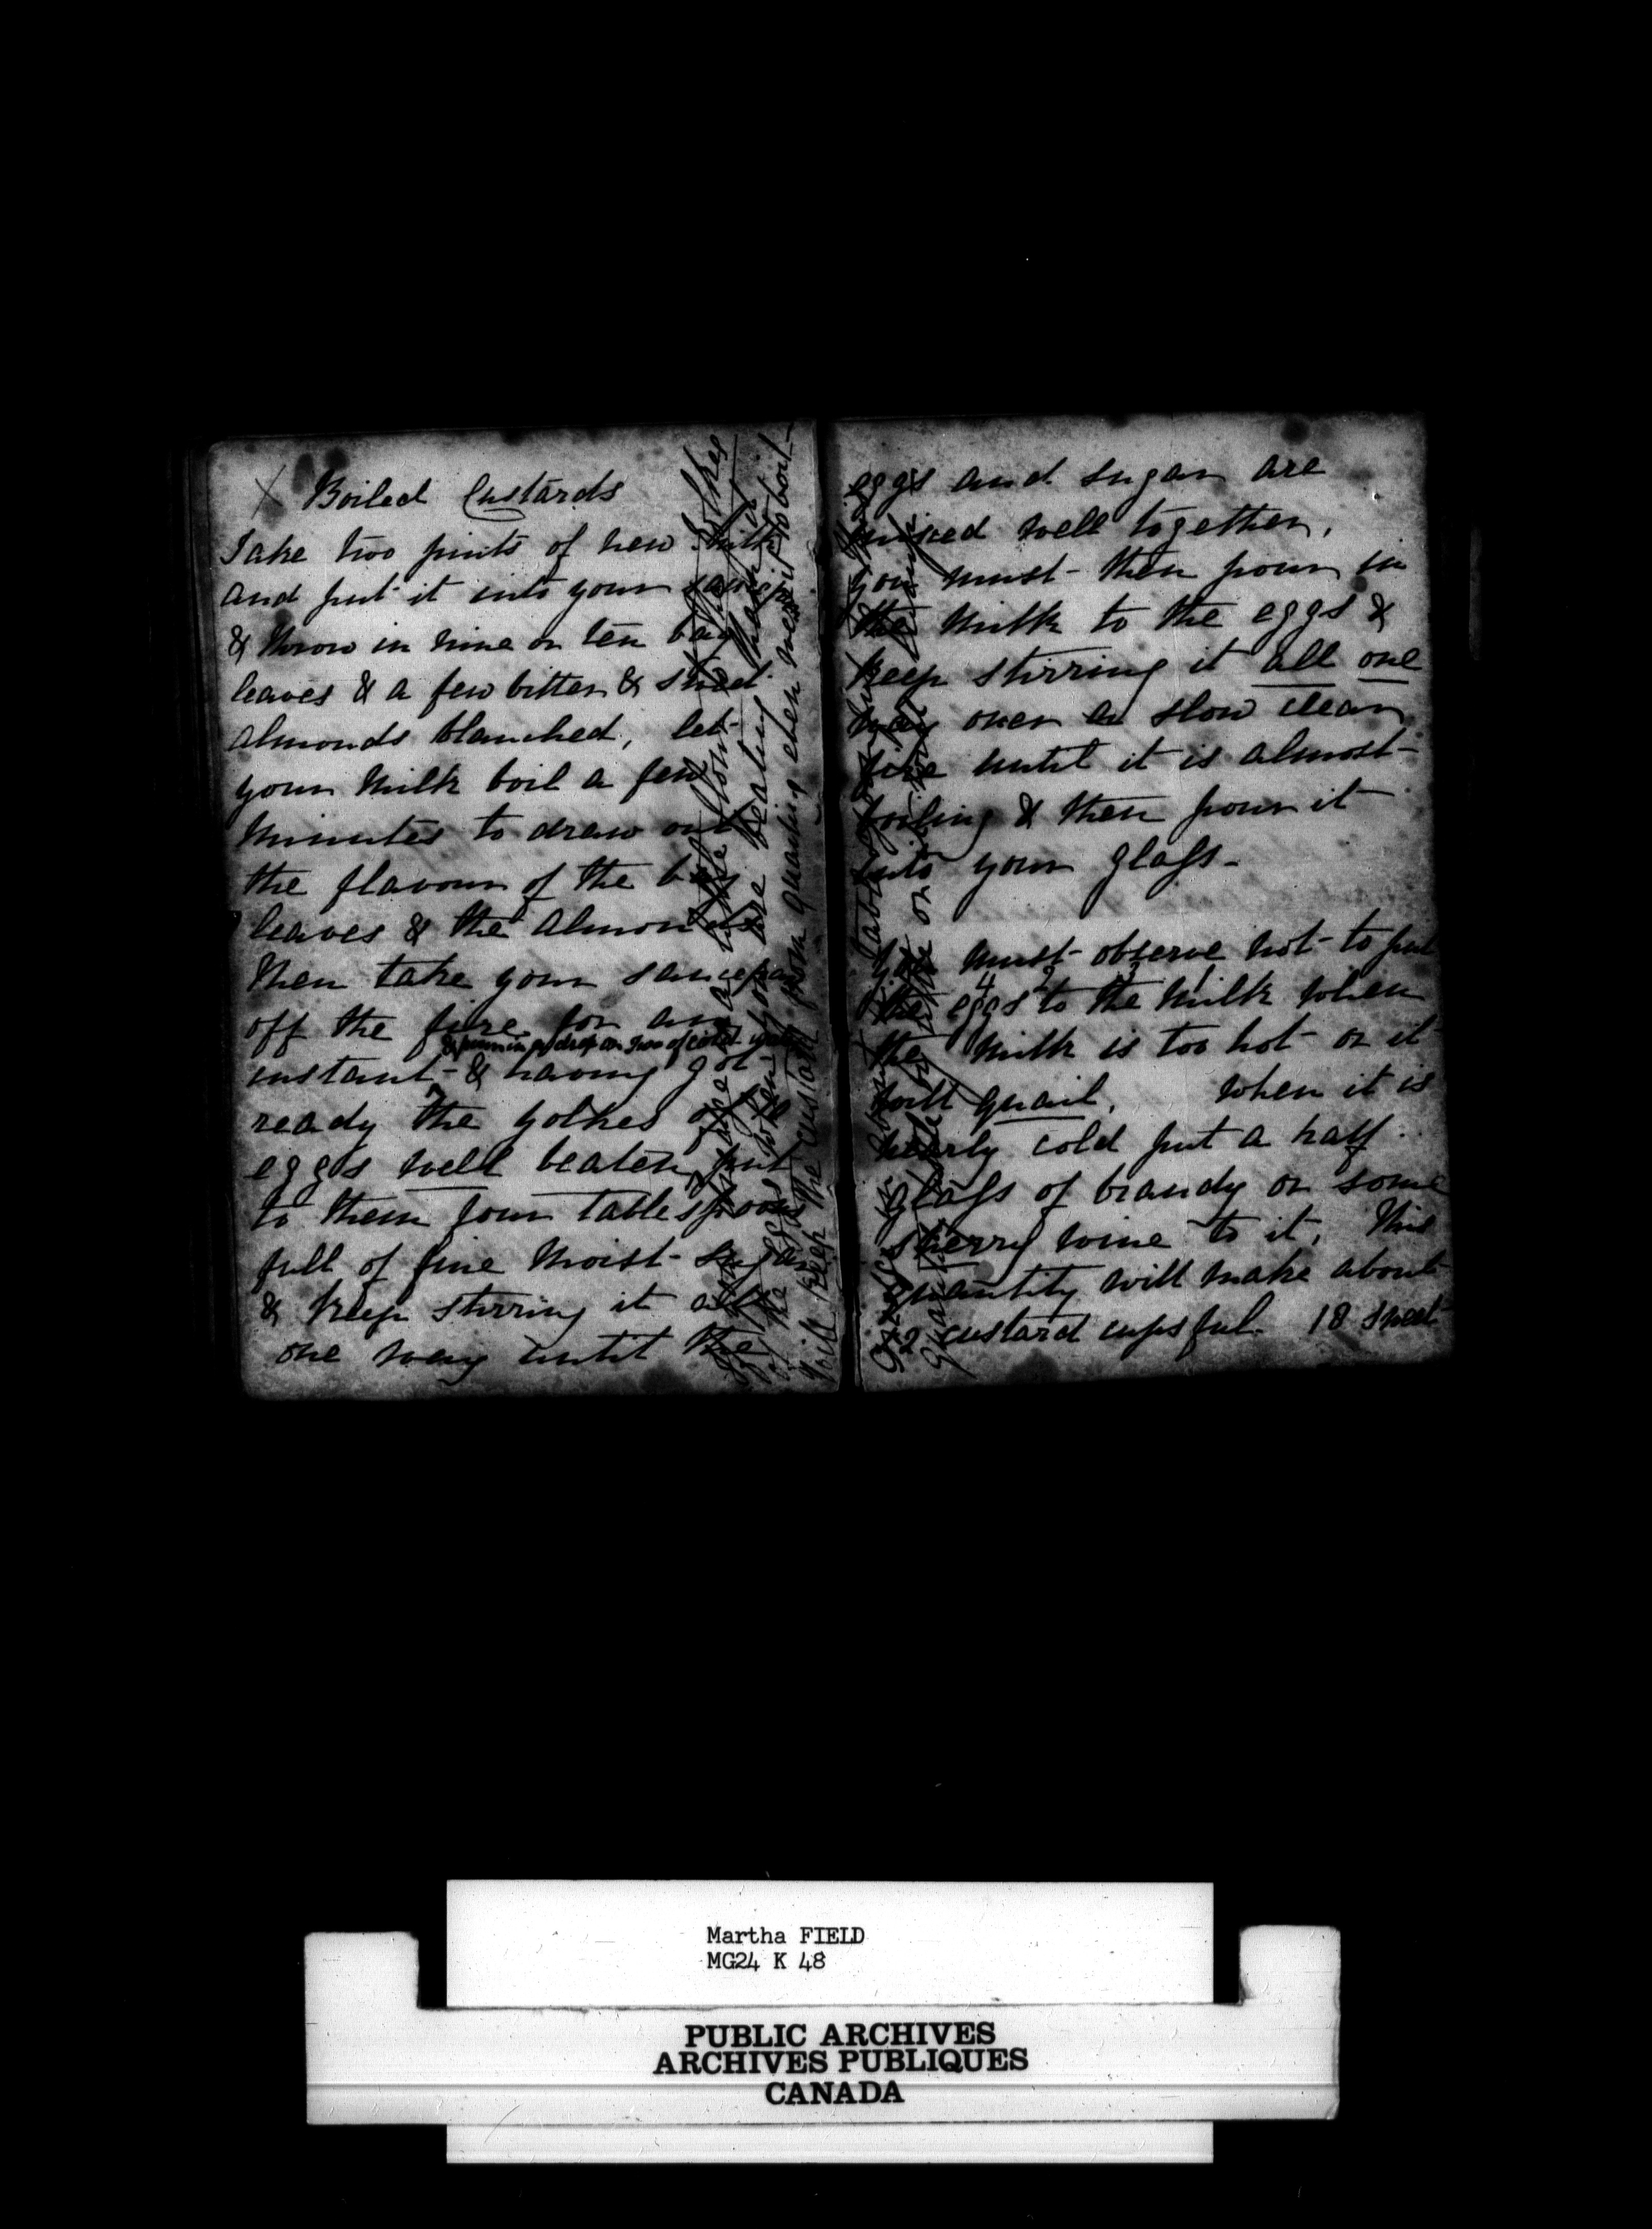 X Boiled Custards
Take two pints of new milk
and put it into your saucepan
& throw in nine or ten bay
leaves & a few bitter & sweet
almonds blanched, let
your milk boil a few
minutes to draw out
the flavour of the bay
leaves & the almonds
then take your saucepan
off the fire for an
& pour in a drop or two of cold
instant & having got
ready the yolkes of
eggs well beaten, put
to them four tablespoons
full of fine moist sugar
& keep stirring it all
one way until the
yolkes
a little flour
of the eggs when you are beating them it
will keep the custard from quailing even were it to boil
eggs and sugar are
mixed well together,
you must then pour in
the milk to the eggs &
keep stirring it all one
way over a slow clear
fire until it is almost
boiling & then pour it
into your glass
You must observe not to put
4 2 3 1
the eggs to the milk when
the milk is too hot or it
will quail. When it is
nearly cold put a half
glass of brandy or some
sherry wine to it. This
quantity will make about
custard cups full 18 sweet
Martha FIELD
MG24 K 48
PUBLIC ARCHIVES
ARCHIVES PUBLIQUES
CANADA